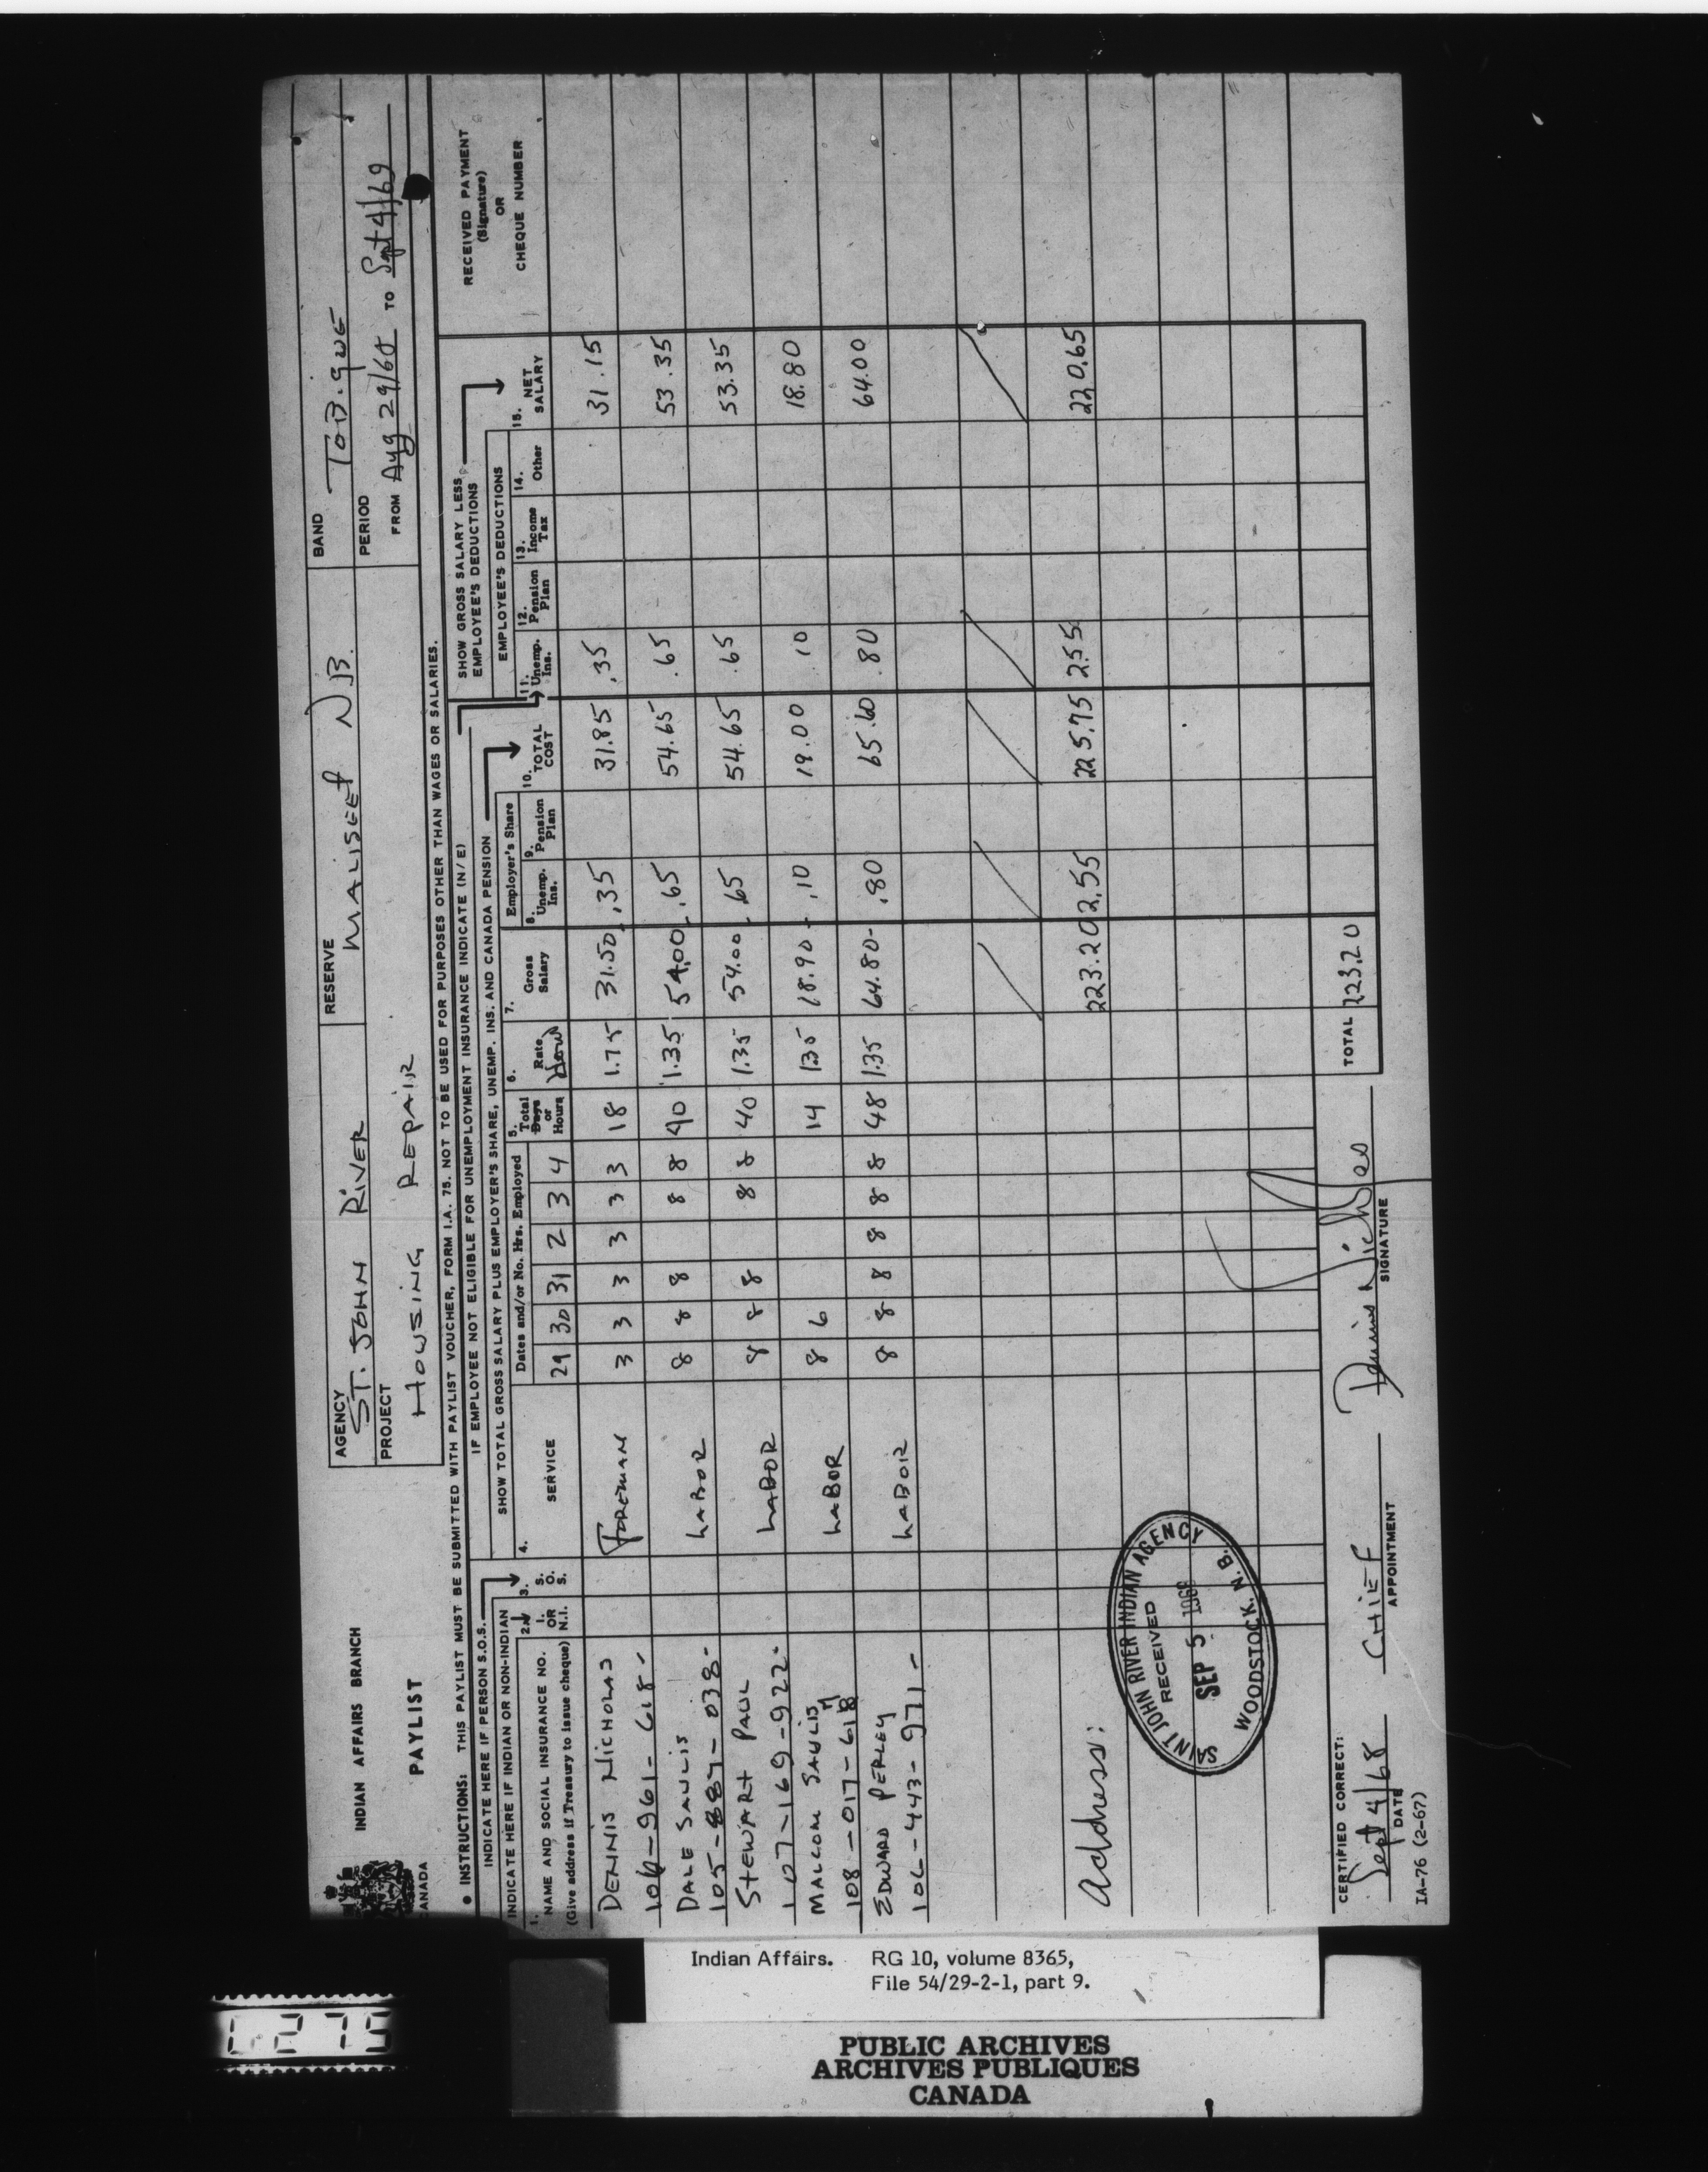 INDIAN AFFAIRS BRANCH
CANADA
PAYLIST
AGENCY
ST. JOHN RIVER
RESERVE
MALISEET N.B.
BAND
PROJECT
HOUSING REPAIR
PERIOD
FROM Aug 29/68 TO Sept 4/69
• INSTRUCTIONS: THIS PAYLIST MUST BE SUBMITTED WITH PAYLIST VOUCHER, FORM I.A. 75. NOT TO BE USED FOR PURPOSES OTHER THAN WAGES OR SALARIES.
IF EMPLOYEE NOT ELIGIBLE FOR UNEMPLOYMENT INSURANCE INDICATE (N/E)
INDICATE HERE IF PERSON S.O.S.
INDICATE HERE IF INDIAN OR NON-INDIAN
SHOW TOTAL GROSS SALARY PLUS EMPLOYER'S SHARE, UNEMP. INS. AND CANADA PENSION
SHOW GROSS SALARY LESS EMPLOYEE'S DEDUCTIONS
1. NAME AND SOCIAL INSURANCE NO.
(Give address if Treasury to issue cheque)
2. I. OR N.I.
3. S. O. S.
4. SERVICE
Dates and/or No. Hrs. Employed
29 30 31 2 3 4
5. Total Days or Hours
6. Rate Hour
7. Gross Salary
Employer's Share
8. Unemp. Ins.
9. Pension Plan
10. TOTAL COST
EMPLOYEE'S DEDUCTIONS
11. Unemp. Ins.
12. Pension Plan
13. Income Tax
14. Other
15. NET SALARY
RECEIVED PAYMENT
(Signature)
OR
CHEQUE NUMBER
DENNIS NICHOLAS FOREMAN 3 3 3 3 3 3 18 1.75 31.50 .35 31.85 .35 31.15
106-961-618-
DALE SAULIS LABOR 8 8 8 8 8 40 1.35 54.00 .65 54.65 .65 53.35
105-887-038-
STEWART PAUL LABOR 8 8 8 8 8 40 1.35 54.00 .65 54.65 .65 53.35
107-169-922-
MALCOM SAULIS LABOR 8 6 14 1.35 18.90 .10 19.00 .10 18.80
108-017-618
EDWARD PERLEY LABOR 8 8 8 8 8 8 48 1.35 64.80 .80 65.60 .80 64.00
106-443-971-
223.20 2.55 225.75 2.55 220.65
Address:
SAINT JOHN RIVER INDIAN AGENCY
RECEIVED
SEP 5 1968
WOODSTOCK, N.B.
TOTAL 223.20
CERTIFIED CORRECT:
Sept 4/68
DATE
CHIEF
APPOINTMENT
Dennis Nicholas
SIGNATURE
IA-76 (2-67)
Indian Affairs. RG 10, volume 8365,
File 54/29-2-1, part 9.
PUBLIC ARCHIVES
ARCHIVES PUBLIQUES
CANADA